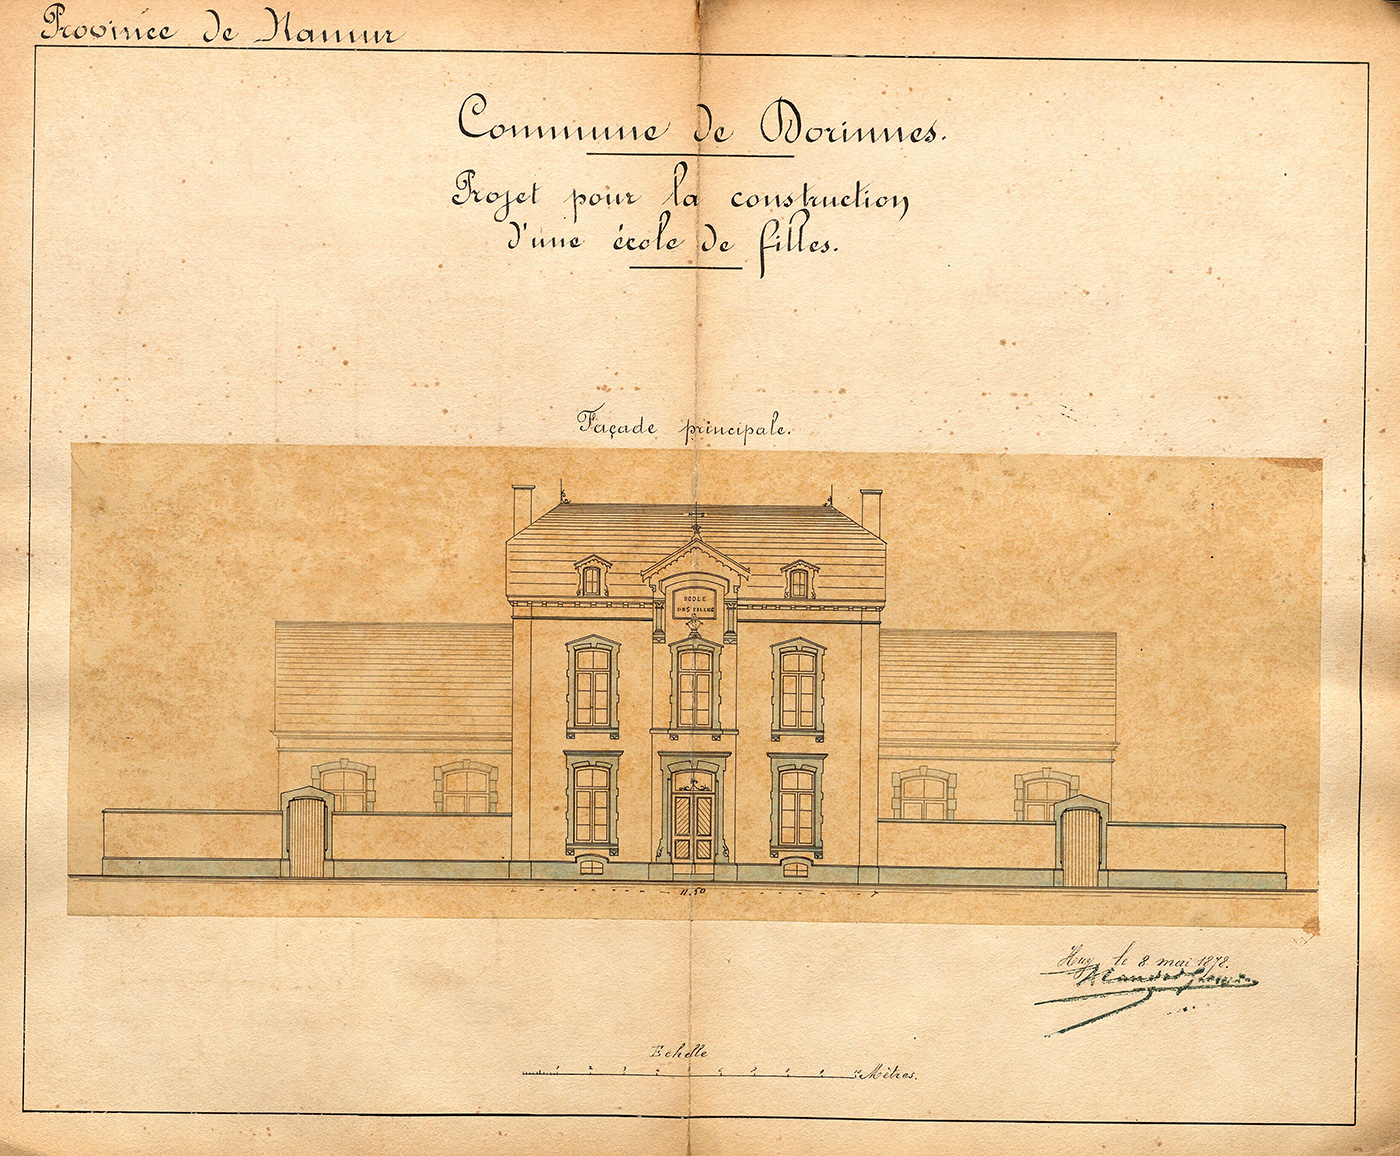 Province de Namur
Commune de Dorinnes.
Projet pour la construction
d'une école de filles.
Façade principale.
ECOLE
DES FILLES
11.50
Huy, le 8 mai 1878.
Echelle
Mètres.